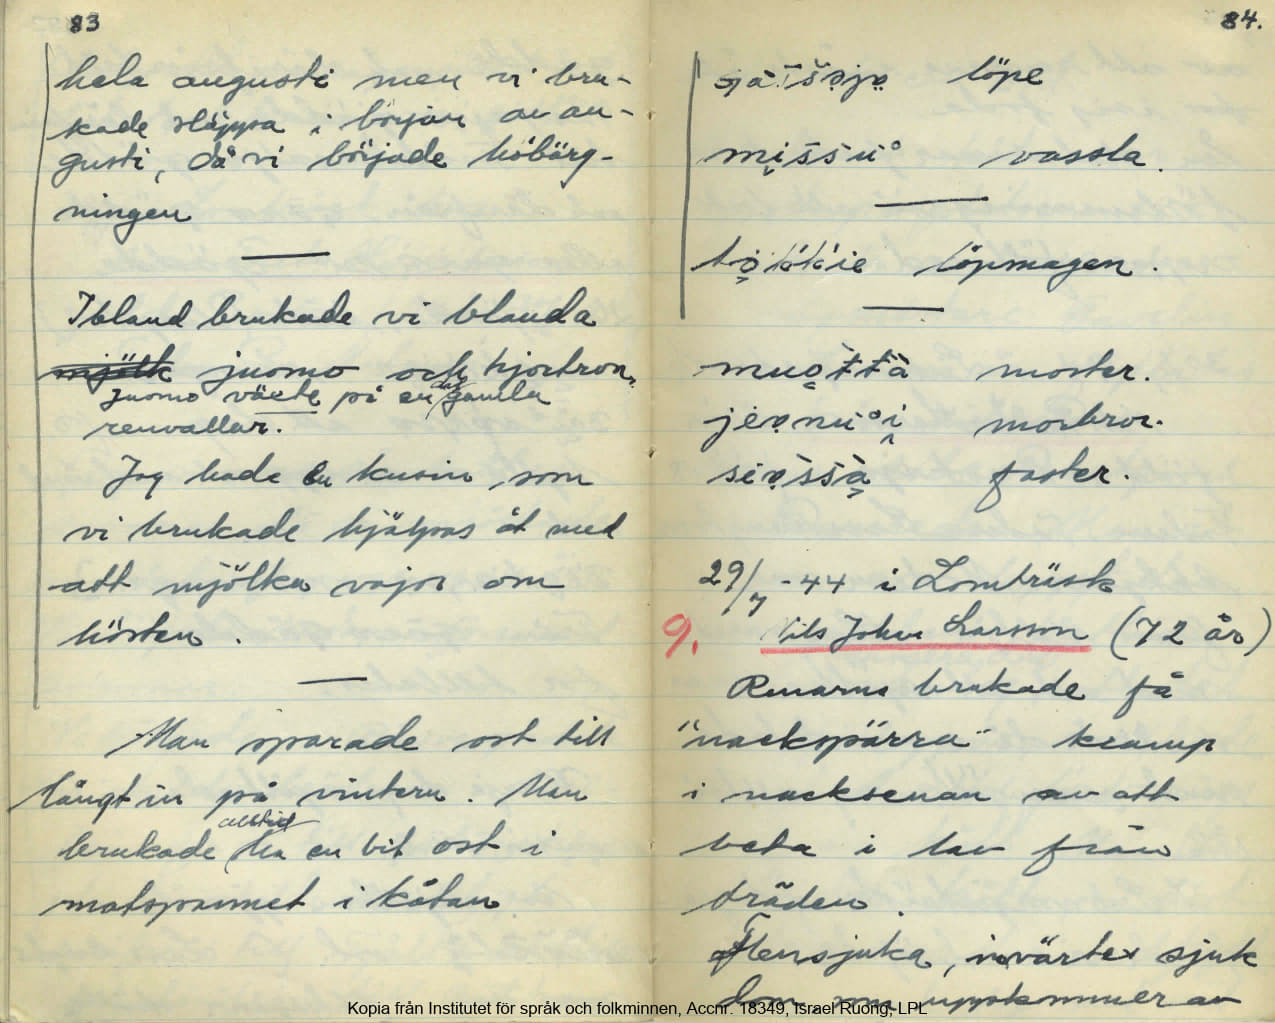 83
hela augusti men vi bru-
kade släppa i början av au-
gusti, då vi började höbärg-
ningen
Ibland brukade vi blanda
mjölk juomo och hjortron.
Juomo växte på en das gamla
renvallar.
Jag hade en kusin som
vi brukade hjälpas åt med
att mjölka vajor om
hösten.
Man sparade ost till
långt in på vintern. Man
alltid
brukade ha en bit ost i
matspannet i kåtan
84.
löpe
missu° vassla.
löpmagen.
moster.
morbror.
faster.
29/7 -44 i Lomträsk
9. Nils Johan Larsson (72 år)
Renarna brukade få
"nackspärra" kramp
i nacksenan av att
beta i lav från
träden.
Flensjuka, invärtes sjuk
dom som uppkommer av
Kopia från Institutet för språk och folkminnen, Accnr. 18349, Israel Ruong, LPL